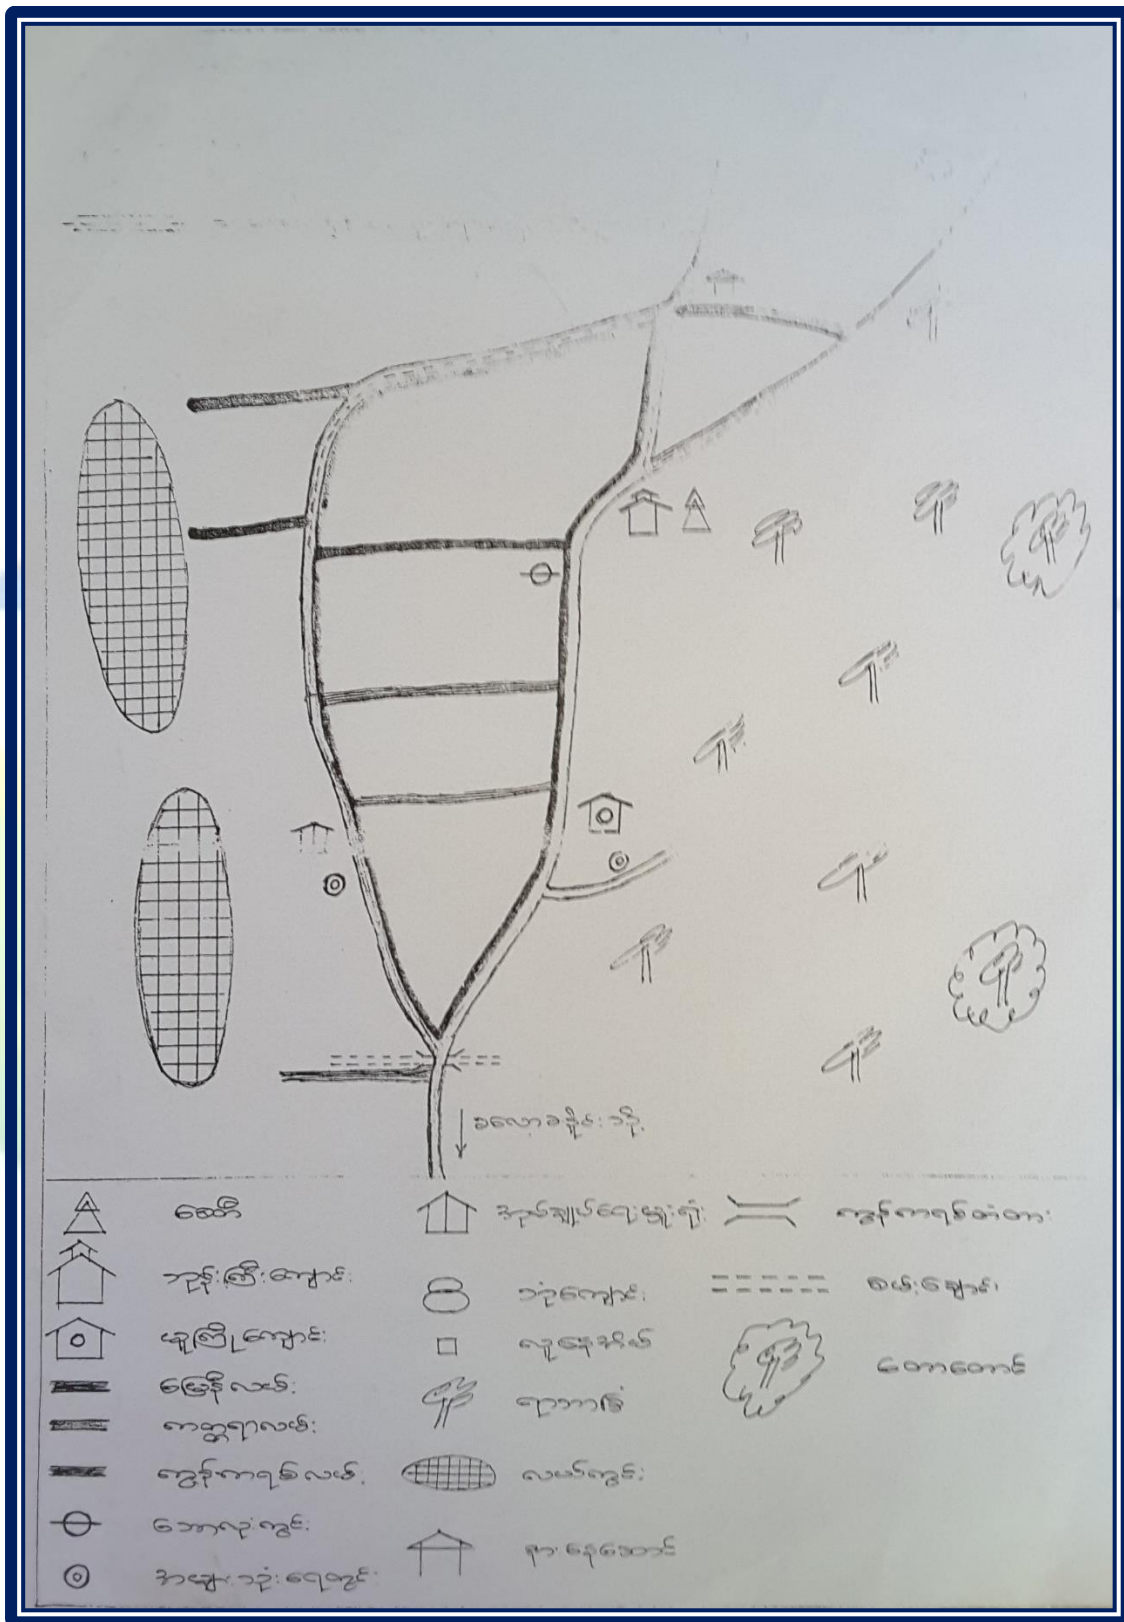 စေတီ
ဘုန်းကြီးကျောင်း
မူကြိုကျောင်း
မြေနီလမ်း
ကတ္တရာလမ်း
ကွန်ကရစ်လမ်း
ဘောလုံးကွင်း
အများသုံးရေတွင်း
အုပ်ချုပ်ရေးမှူးရုံး
လူနေအိမ်
ရာဘာခြံ
လယ်ကွင်း
နားနေဆောင်
ကွန်ကရစ်တံတား
စမ်းချောင်း
တောတောင်